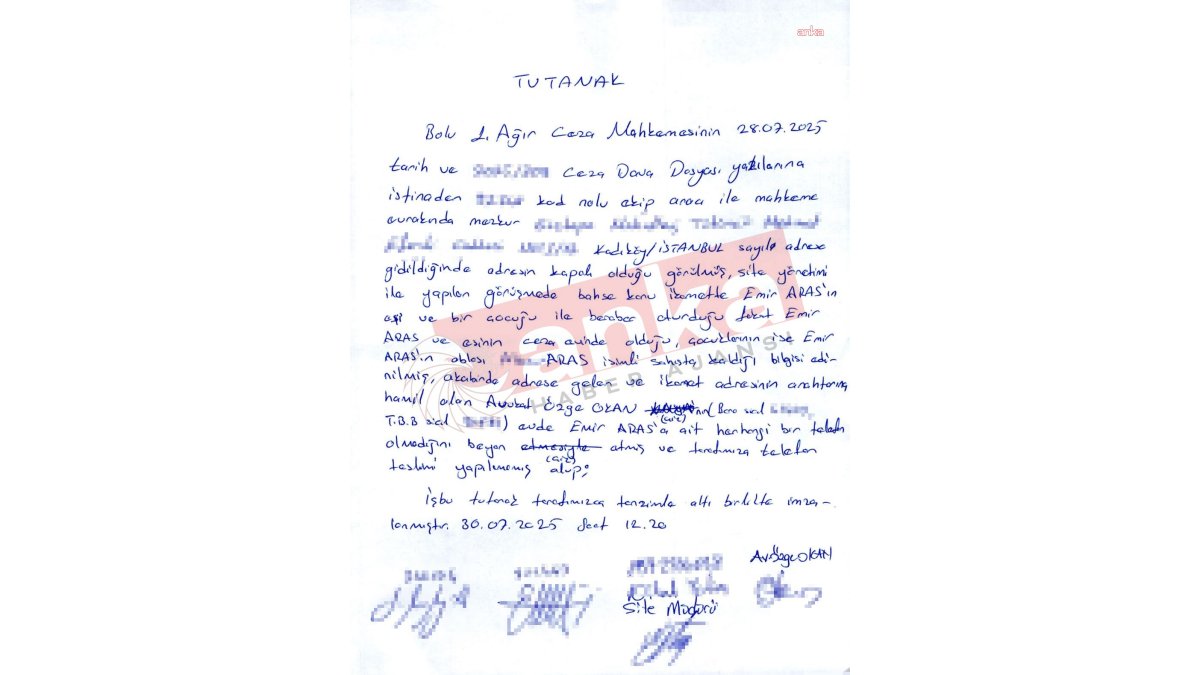 anka
TUTANAK
Bolu 1. Ağır Ceza Mahkemesinin 28.07.2025
tarih ve Ceza Dava Dosyası yazılarına
istinaden kod nolu ekip aracı ile mahkeme
evrakında mezkur
Kadıköy/İSTANBUL sayılı adrese
gidildiğinde adresin kapalı olduğu görülmüş, site yönetimi
ile yapılan görüşmede bahse konu ikamette Emir ARAS'ın
eşi ve bir çocuğu ile beraber oturduğu fakat Emir
ARAS ve eşinin ceza evinde olduğu, çocuklarının ise Emir
ARAS'ın ablası ARAS isimli şahısta kaldığı bilgisi edi-
nilmiş, akabinde adrese gelen ve ikamet adresinin anahtarını
hamil olan Avukat Özge OKAN nın (Baro sicil
(çiz)
T.B.B sicil ) evde Emir ARAS'a ait herhangi bir telefon
olmadığını beyan etmesiyle etmiş ve tarafımıza telefon
(çiz)
teslimi yapılmamış olup;
İşbu tutanak tarafımızca tanzimle altı birlikte imza-
lanmıştır. 30.07.2025 Saat 12.20
Av. Özge OKAN
Site Müdürü
anka
HABER AJANSI